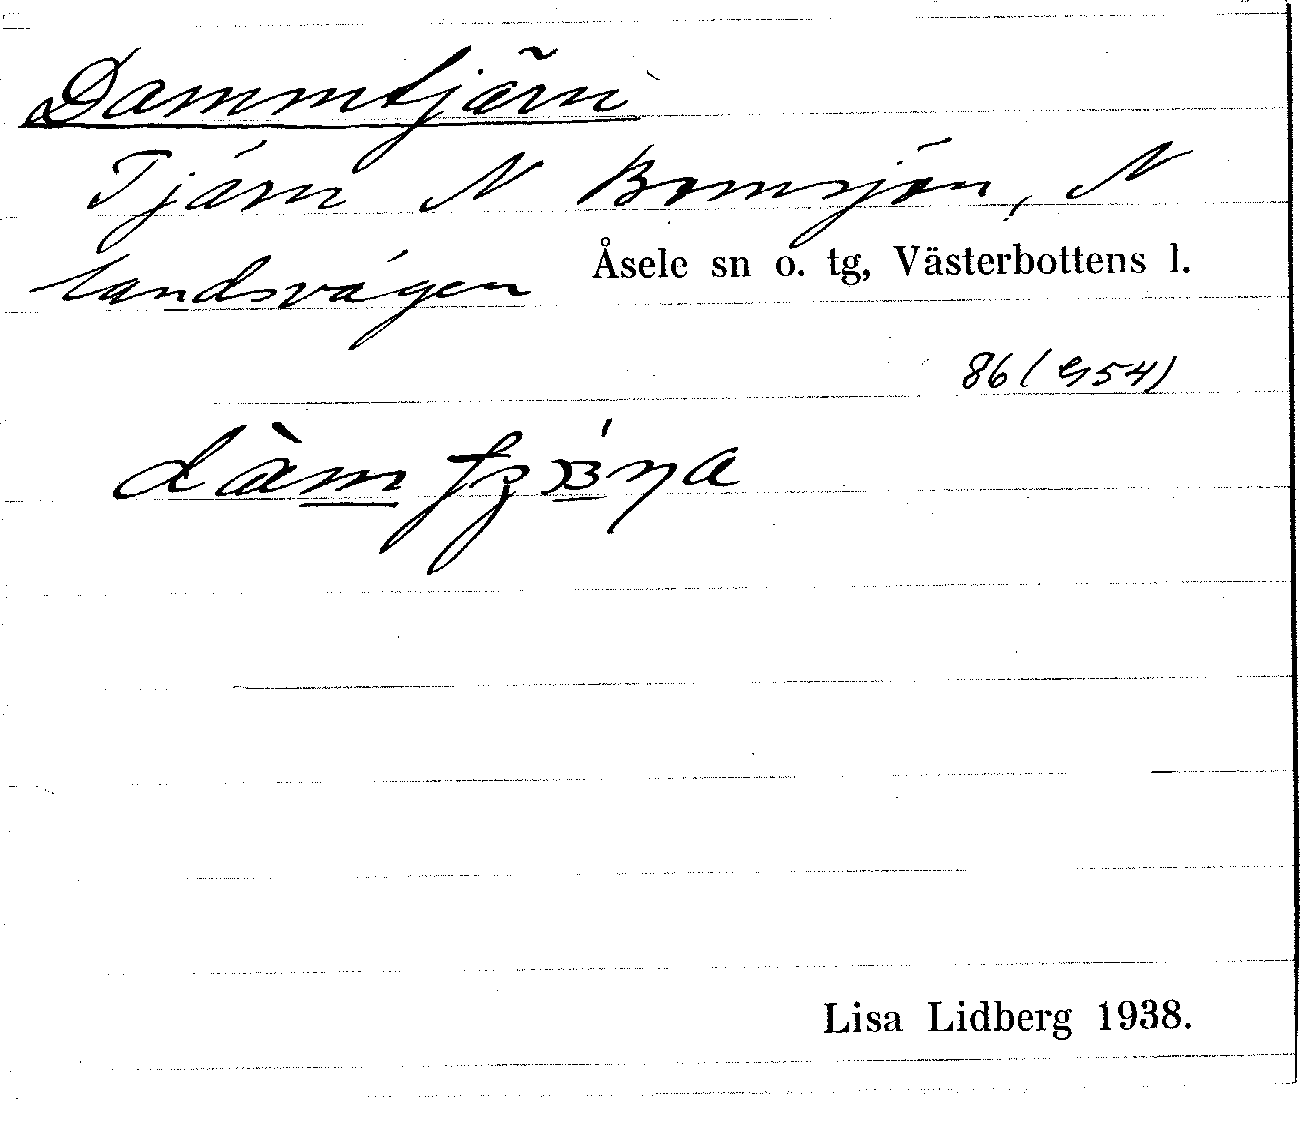 Dammtjärn
Tjärn N Bomsjön, N
landsvägen Åsele sn o. tg, Västerbottens l.
86 (G54)
Lisa Lidberg 1938.